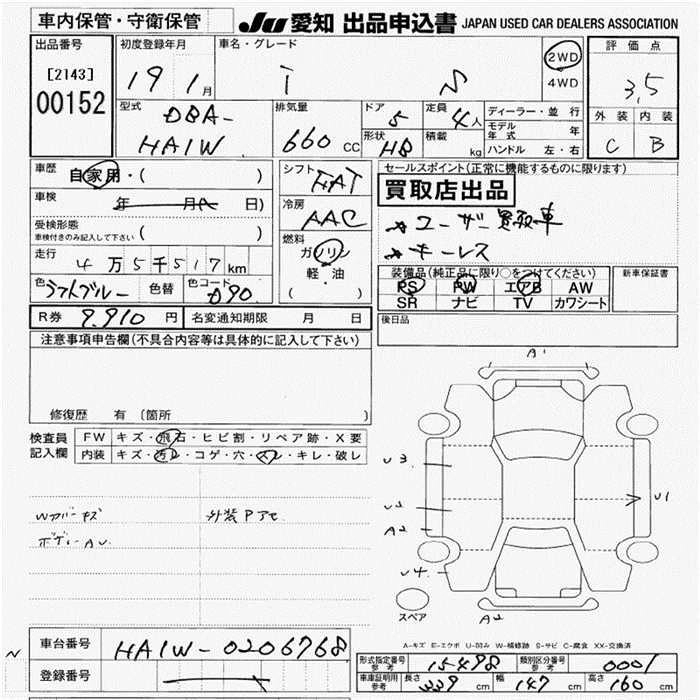 車内保管・守衛保管 JU 愛知 出品申込書 JAPAN USED CAR DEALERS ASSOCIATION
出品番号 初度登録年月 車名・グレード 2WD 評価点
[2143] 19 1月 i S 4WD 3.5
00152
型式 DBA- 排気量 ドア 5 定員 4人 ディーラー・並行 外装 内装
HA1W 660 CC 形状 HB 積載 kg モデル年式 年 C B
ハンドル 左・右
車歴 自家用・( ) シフト FAT セールスポイント(正常に機能するものに限ります)
車検 年 月 日) 冷房 AAC 買取店出品
受検形態 ( ) ☆ユーザー買取車
車検付きのみ記入して下さい 燃料 ☆キーレス
走行 4万5千517km ガソリン 装備品(純正品に限り○をつけてください) 新車保証書
軽・油 PS PW エアB AW
色 ライトブルー 色替 色コード D90 ( ) SR ナビ TV カワシート
R券 9,910 円 名変通知期限 月 日 後日品
注意事項申告欄(不具合内容等は具体的に記入して下さい)
修復歴 有 (箇所
検査員 FW キズ・飛石・ヒビ割・リペア跡・X要
記入欄 内装 キズ・汚レ・コゲ・穴・スレ・キレ・破レ
A1
U3
U2 U1
A2
U4
Wカバーキズ 外装Pアセ
ボデーAU
スペア A2
A-キズ E-エクボ U-凹み W-補修跡 S-サビ C-腐食 XX-交換済
車台番号 HA1W-0206768
登録番号
形式指定番号 参考 15498 類別区分番号 参考 0001
車庫証明用 参考 長さ 339 cm 幅 147 cm 高さ 160 cm